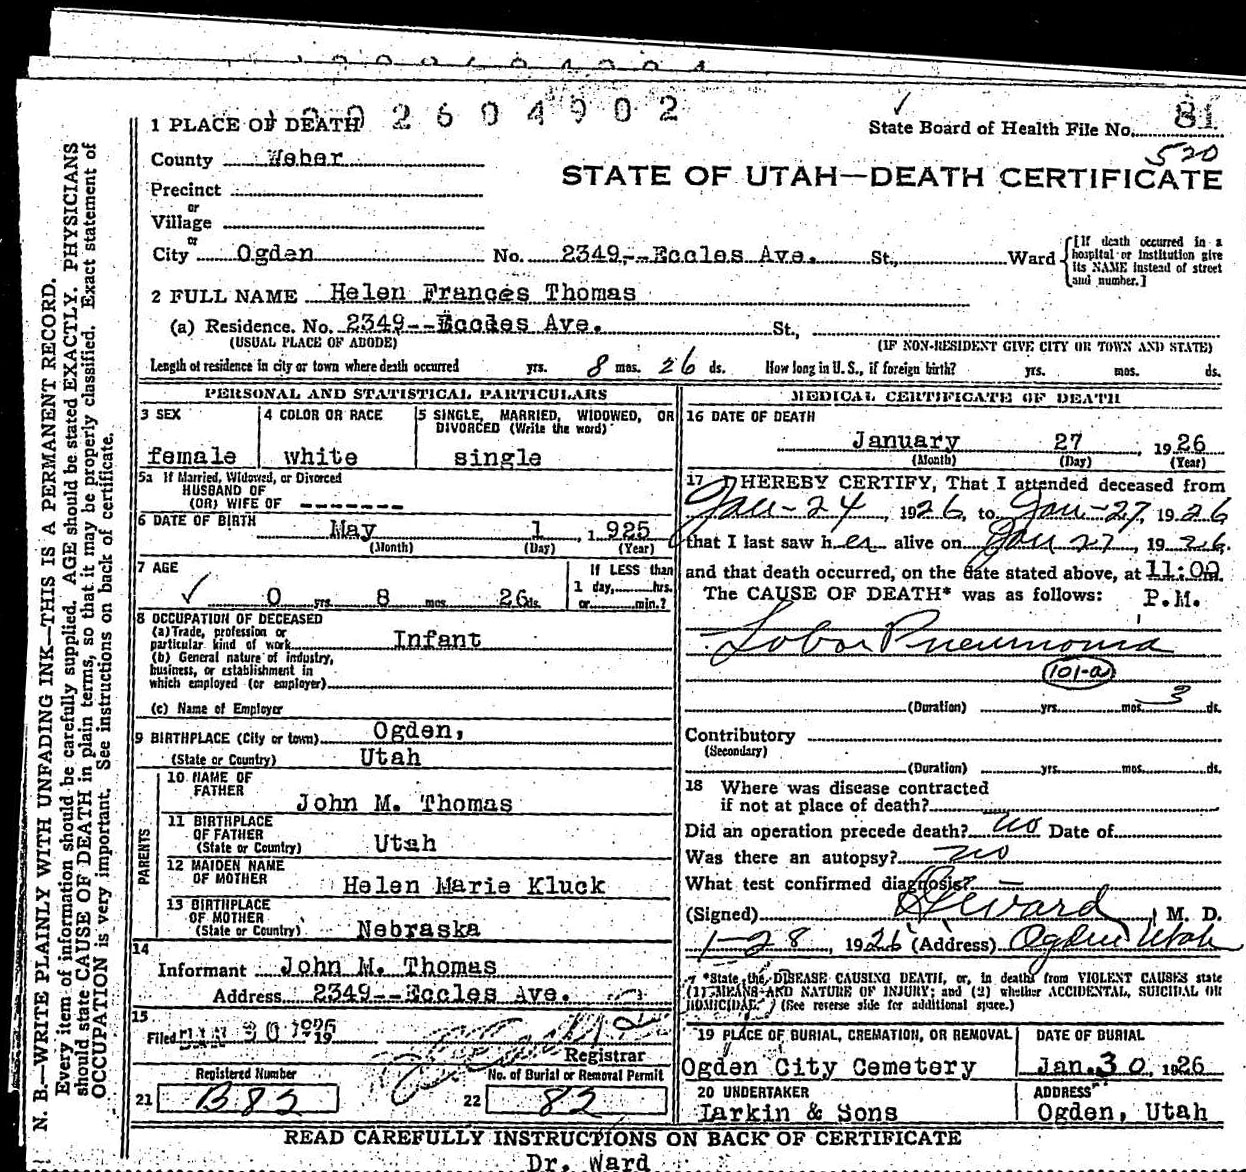 1 PLACE OF DEATH
2604902
State Board of Health File No. 81
520
County Weber
STATE OF UTAH—DEATH CERTIFICATE
Precinct
or
Village
or
City Ogden No. 2349--Eccles Ave. St., Ward
[If death occurred in a hospital or institution give its NAME instead of street and number.]
2 FULL NAME Helen Frances Thomas
(a) Residence. No. 2349--Eccles Ave. St.,
(USUAL PLACE OF ABODE) (IF NON-RESIDENT GIVE CITY OR TOWN AND STATE)
Length of residence in city or town where death occurred yrs. 8 mos. 26 ds. How long in U. S., if foreign birth? yrs. mos. ds.
PERSONAL AND STATISTICAL PARTICULARS
3 SEX
female
4 COLOR OR RACE
white
5 SINGLE, MARRIED, WIDOWED, OR
DIVORCED (Write the word)
single
5a If Married, Widowed, or Divorced
HUSBAND OF
(OR) WIFE OF -------
6 DATE OF BIRTH
May 1, 1925
(Month) (Day) (Year)
7 AGE
✓ 0 yrs 8 mos 26 ds.
If LESS than
1 day, hrs.
or min.?
8 OCCUPATION OF DECEASED
(a) Trade, profession or
particular kind of work Infant
(b) General nature of industry,
business, or establishment in
which employed (or employer)
(c) Name of Employer
9 BIRTHPLACE (City or town) Ogden,
(State or Country) Utah
PARENTS
10 NAME OF
FATHER
John M. Thomas
11 BIRTHPLACE
OF FATHER
(State or Country) Utah
12 MAIDEN NAME
OF MOTHER Helen Marie Kluck
13 BIRTHPLACE
OF MOTHER
(State or Country) Nebraska
14
Informant John M. Thomas
Address 2349--Eccles Ave.
15
Filed JAN 30 1926 19
Registrar
Registered Number
21 B82
No. of Burial or Removal Permit
22 82
MEDICAL CERTIFICATE OF DEATH
16 DATE OF DEATH
January 27, 1926
(Month) (Day) (Year)
17 I HEREBY CERTIFY, That I attended deceased from
Jan-24, 1926, to Jan-27, 1926
that I last saw her alive on Jan 27, 1926.
and that death occurred, on the date stated above, at 11:00
The CAUSE OF DEATH* was as follows: P.M.
Lobar Pneumonia
101-a
(Duration) yrs. mos. 3 ds.
Contributory
(Secondary)
(Duration) yrs. mos. ds.
18 Where was disease contracted
if not at place of death?
Did an operation precede death? no Date of
Was there an autopsy? no
What test confirmed diagnosis? —
(Signed) Ward, M. D.
1-28, 1926 (Address) Ogden Utah
*State the DISEASE CAUSING DEATH, or, in deaths from VIOLENT CAUSES state
(1) MEANS AND NATURE OF INJURY; and (2) whether ACCIDENTAL, SUICIDAL OR
HOMICIDAL. (See reverse side for additional space.)
19 PLACE OF BURIAL, CREMATION, OR REMOVAL
Ogden City Cemetery
DATE OF BURIAL
Jan. 30, 1926
20 UNDERTAKER
Larkin & Sons
ADDRESS
Ogden, Utah
READ CAREFULLY INSTRUCTIONS ON BACK OF CERTIFICATE
Dr. Ward
N. B.—WRITE PLAINLY WITH UNFADING INK—THIS IS A PERMANENT RECORD.
Every item of information should be carefully supplied. AGE should be stated EXACTLY. PHYSICIANS
should state CAUSE OF DEATH in plain terms, so that it may be properly classified. Exact statement of
OCCUPATION is very important. See instructions on back of certificate.